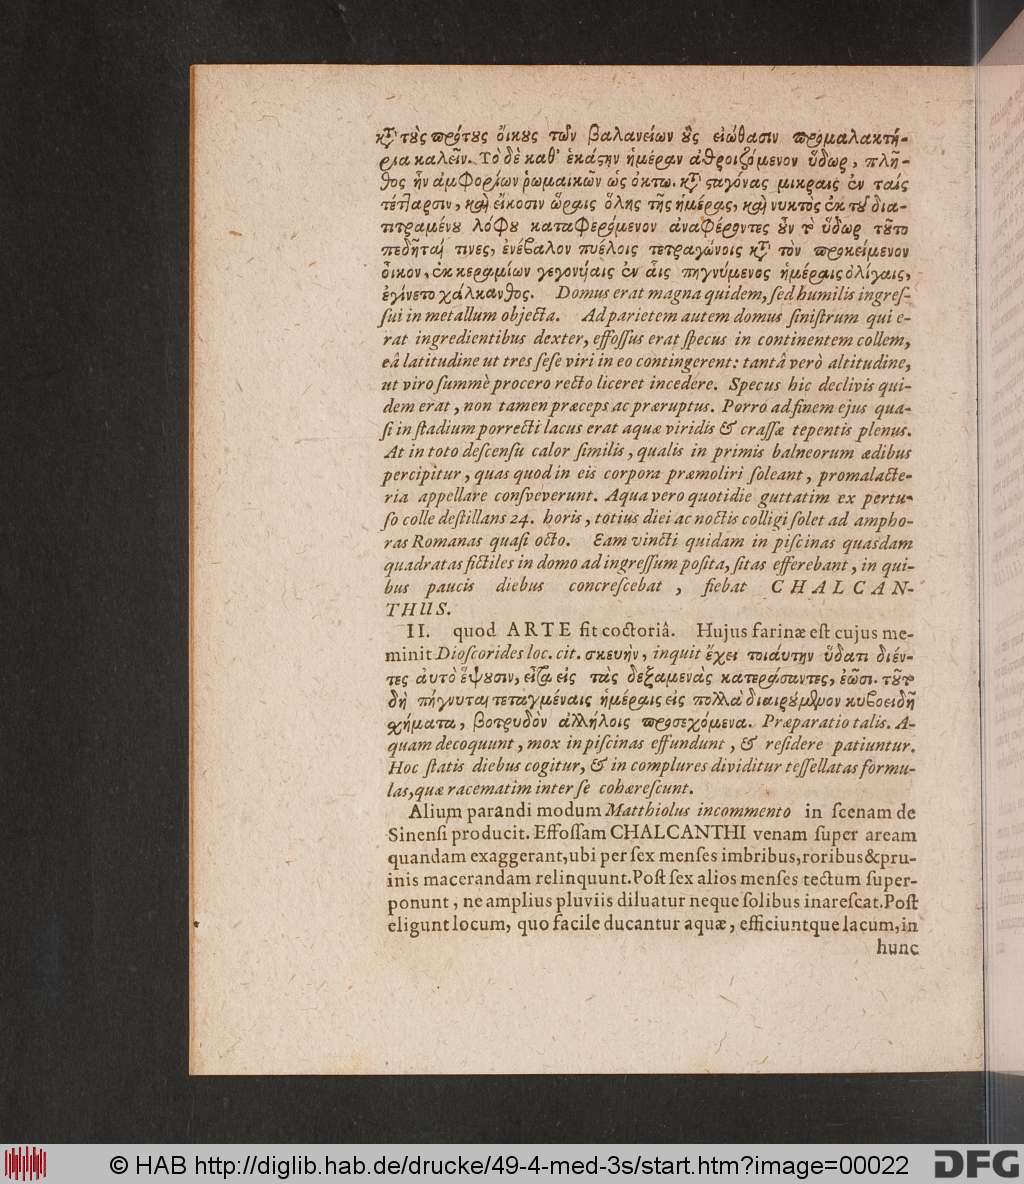 κτ̀ τοὺς πρότους οἴκους τῶν βαλανείων οὓς εἰώθασιν προμαλακτή-
ρια καλεῖν. Τὸ δὲ καθ' ἑκάςην ἡμέραν ἀθροιζόμενον ὕδωρ, πλῆ-
θος ἦν ἀμφορίων ῥωμαικῶν ὡς ὀκτω. κτ̀ ςαγόνας μικραις ἐν ταίς
τέτlαρσιν, καὶ εἴκοσιν ὥραις ὅλης τῆς ἡμέρας, καὶ νυκτὸς ἐκ τοῦ δια-
τιτραμένου λόφου καταφερόμενον ἀναφέροντες οὖν τὸ ὕδωρ τοῦτο
πεδῆται τινες, ἐνέϐαλον πυέλοις τετραγώνοις κτ̀ τὸν προκείμενον
οἶκον, ἐκ κεραμίων γεγονυίαις ἐν αἷς πηγνύμενος ἡμέραις ὀλίγαις,
ἐγίνετο χάλκανθος. Domus erat magna quidem, ſed humilis ingreſ-
ſui in metallum objecta. Ad parietem autem domus ſiniſtrum qui e-
rat ingredientibus dexter, effoſſus erat ſpecus in continentem collem,
eâ latitudine ut tres ſeſe viri in eo contingerent: tantâ verò altitudine,
ut viro ſummè procero recto liceret incedere. Specus hic declivis qui-
dem erat, non tamen præceps ac præruptus. Porro ad finem ejus qua-
ſi in ſtadium porrecti lacus erat aquæ viridis & craſſæ tepentis plenus.
At in toto deſcenſu calor ſimilis, qualis in primis balneorum ædibus
percipitur, quas quod in eis corpora præmoliri ſoleant, promalacte-
ria appellare conſveverunt. Aqua vero quotidie guttatim ex pertu-
ſo colle deſtillans 24. horis, totius diei ac noctis colligi ſolet ad ampho-
ras Romanas quaſi octo. Eam vincti quidam in piſcinas quasdam
quadratas fictiles in domo ad ingreſſum poſita, ſitas efferebant, in qui-
bus paucis diebus concreſcebat, fiebat CHALCAN-
THUS.
II. quod ARTE fit coctoriâ. Hujus farinæ eſt cujus me-
minit Dioſcorides loc. cit. σκευὴν, inquit ἔχει τοιάυτην ὕδατι διέν-
τες ἀυτὸ ἕψουσιν, εἶτα εἰς τὰς δεξαμενὰς κατεράσαντες, ἐῶσι. τοῦτο
δὴ πήγνυται τεταγμέναις ἡμέραις εἰς πολλὰ διαιρούμενον κυϐοειδῆ
σχήματα, βοτρυδὸν ἀλλήλοις προσεχόμενα. Præparatio talis. A-
quam decoquunt, mox in piſcinas effundunt, & reſidere patiuntur.
Hoc ſtatis diebus cogitur, & in complures dividitur teſſellatas formu-
las, quæ racematim inter ſe cohæreſcunt.
Alium parandi modum Matthiolus incommento in ſcenam de
Sinenſi producit. Effoſſam CHALCANTHI venam ſuper aream
quandam exaggerant, ubi per ſex menſes imbribus, roribus & pru-
inis macerandam relinquunt. Poſt ſex alios menſes tectum ſuper-
ponunt, ne amplius pluviis diluatur neque ſolibus inareſcat. Poſt
eligunt locum, quo facile ducantur aquæ, efficiuntque lacum, in
hunc
© HAB http://diglib.hab.de/drucke/49-4-med-3s/start.htm?image=00022
DFG